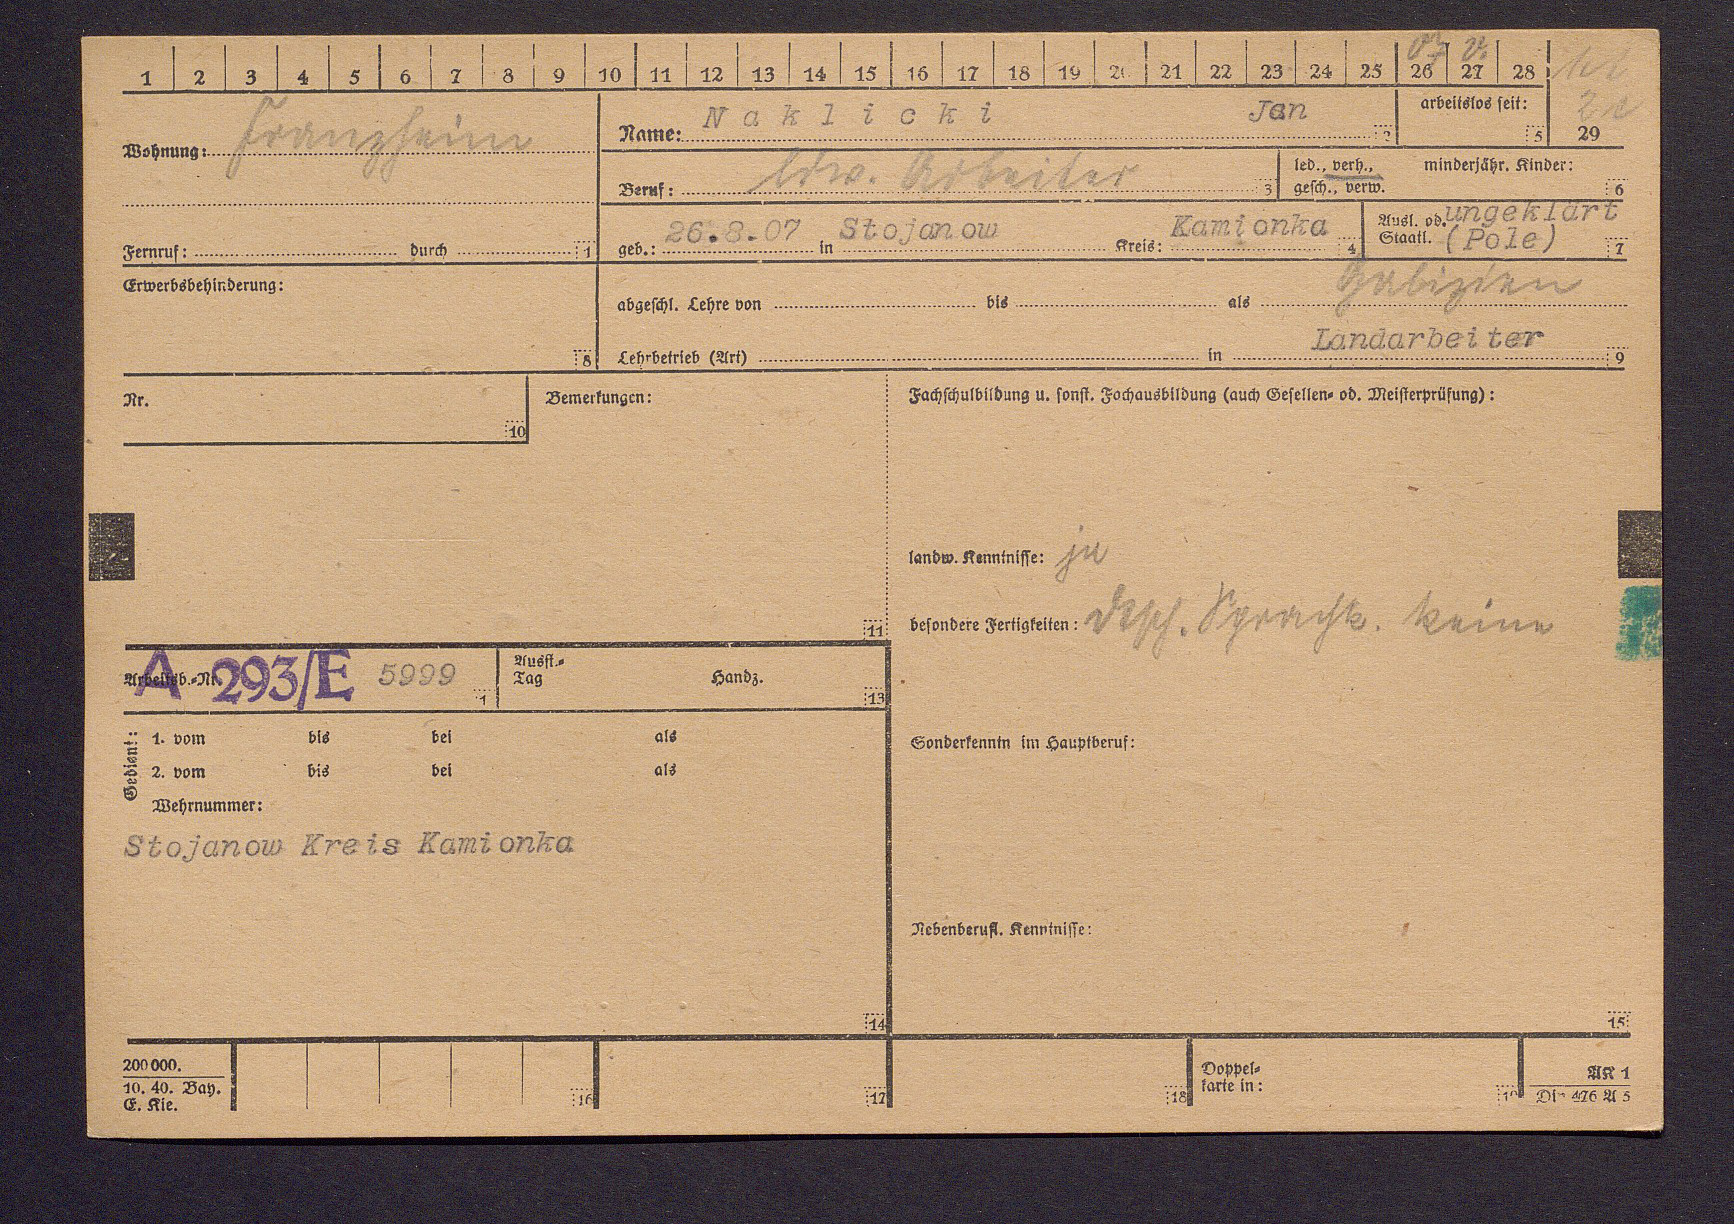 1 2 3 4 5 6 7 8 9 10 11 12 13 14 15 16 17 18 19 20 21 22 23 24 25 26 27 28
07 v.
29
Wohnung: Franzheim
Name: Naklicki Jan 2
arbeitslos seit: 5
Beruf: ldw. Arbeiter 3
led., verh., gesch., verw.
minderjähr. Kinder: 6
Fernruf: durch 1
geb.: 26.8.07 in Stojanow Kreis: Kamionka 4
Ausl. od. Staatl. ungeklärt (Pole) 7
Erwerbsbehinderung: 8
Galizien
abgeschl. Lehre von bis als
Landarbeiter
Lehrbetrieb (Art) in 9
Nr. 10
Bemerkungen: 11
Fachschulbildung u. sonst. Fachausbildung (auch Gesellen- od. Meisterprüfung):
landw. Kenntnisse: ja
besondere Fertigkeiten: dtsch. Sprachk. keine
Arbeitsb.-Nr. A 293/E 5999 1
Ausst.-Tag Handz. 13
Gedient:
1. vom bis bei als
2. vom bis bei als
Wehrnummer:
Stojanow Kreis Kamionka
14
Sonderkenntn im Hauptberuf:
Nebenberufl. Kenntnisse:
15
200000.
10. 40. Bay.
E. Kie.
16 17 18
Doppel-
karte in:
19
AK 1
Din 476 A 5